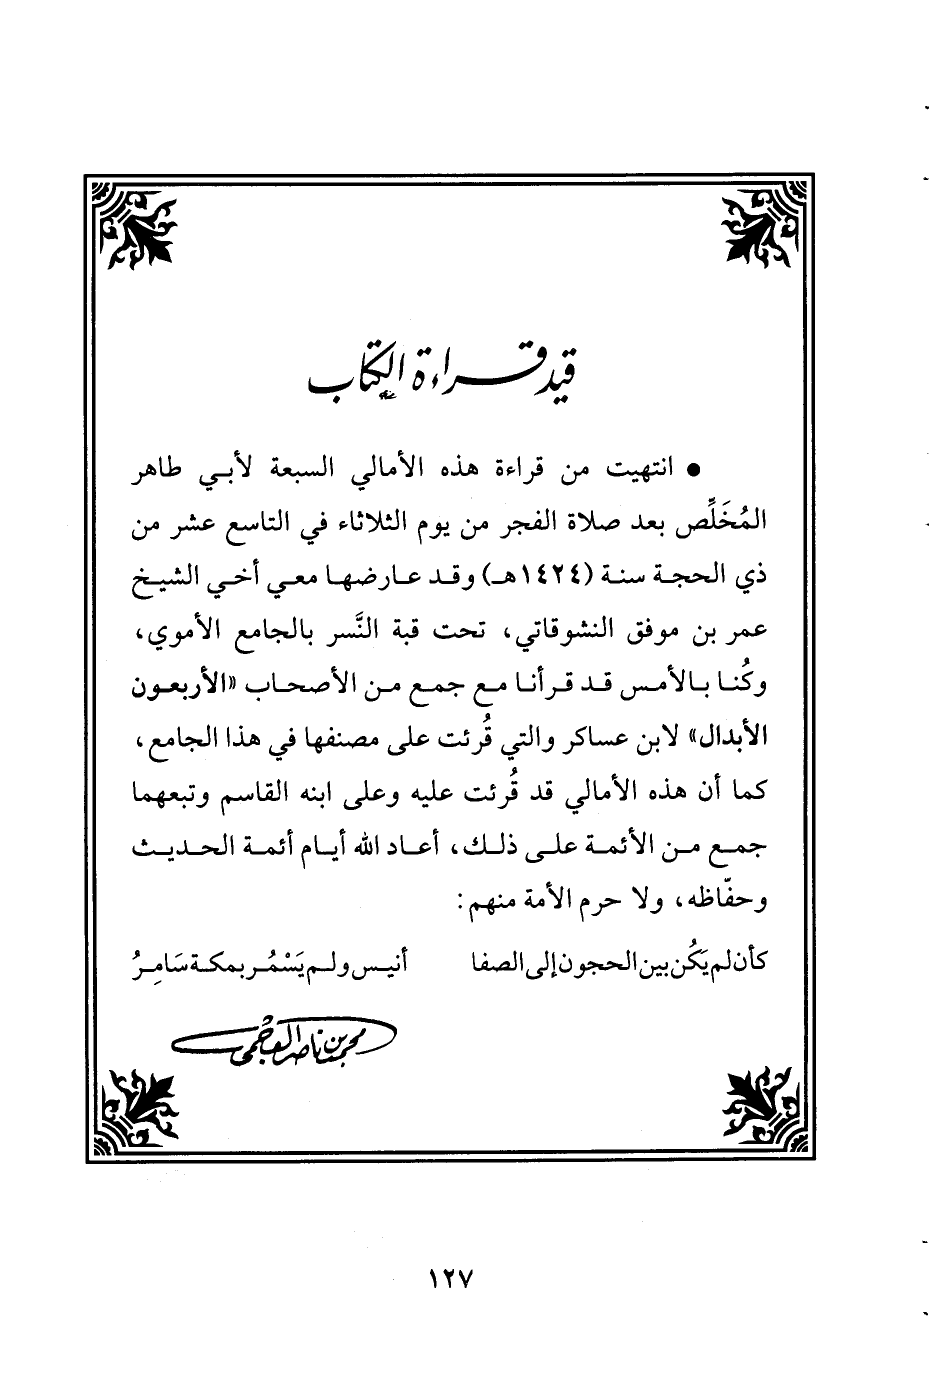 قيد قراءة الكتاب
● انتهيت من قراءة هذه الأمالي السبعة لأبي طاهر
المُخَلِّص بعد صلاة الفجر من يوم الثلاثاء في التاسع عشر من
ذي الحجة سنة (١٤٢٤هـ) وقد عارضها معي أخي الشيخ
عمر بن موفق النشوقاتي، تحت قبة النَّسر بالجامع الأموي،
وكُنا بالأمس قد قرأنا مع جمع من الأصحاب «الأربعون
الأبدال» لابن عساكر والتي قُرئت على مصنفها في هذا الجامع،
كما أن هذه الأمالي قد قُرئت عليه وعلى ابنه القاسم وتبعهما
جمع من الأئمة على ذلك، أعاد الله أيام أئمة الحديث
وحفّاظه، ولا حرم الأمة منهم:
كأن لم يَكُن بين الحجون إلى الصفا أنيس ولم يَسْمُر بمكة سَامِرُ
محمد بن ناصر العجمي
١٢٧